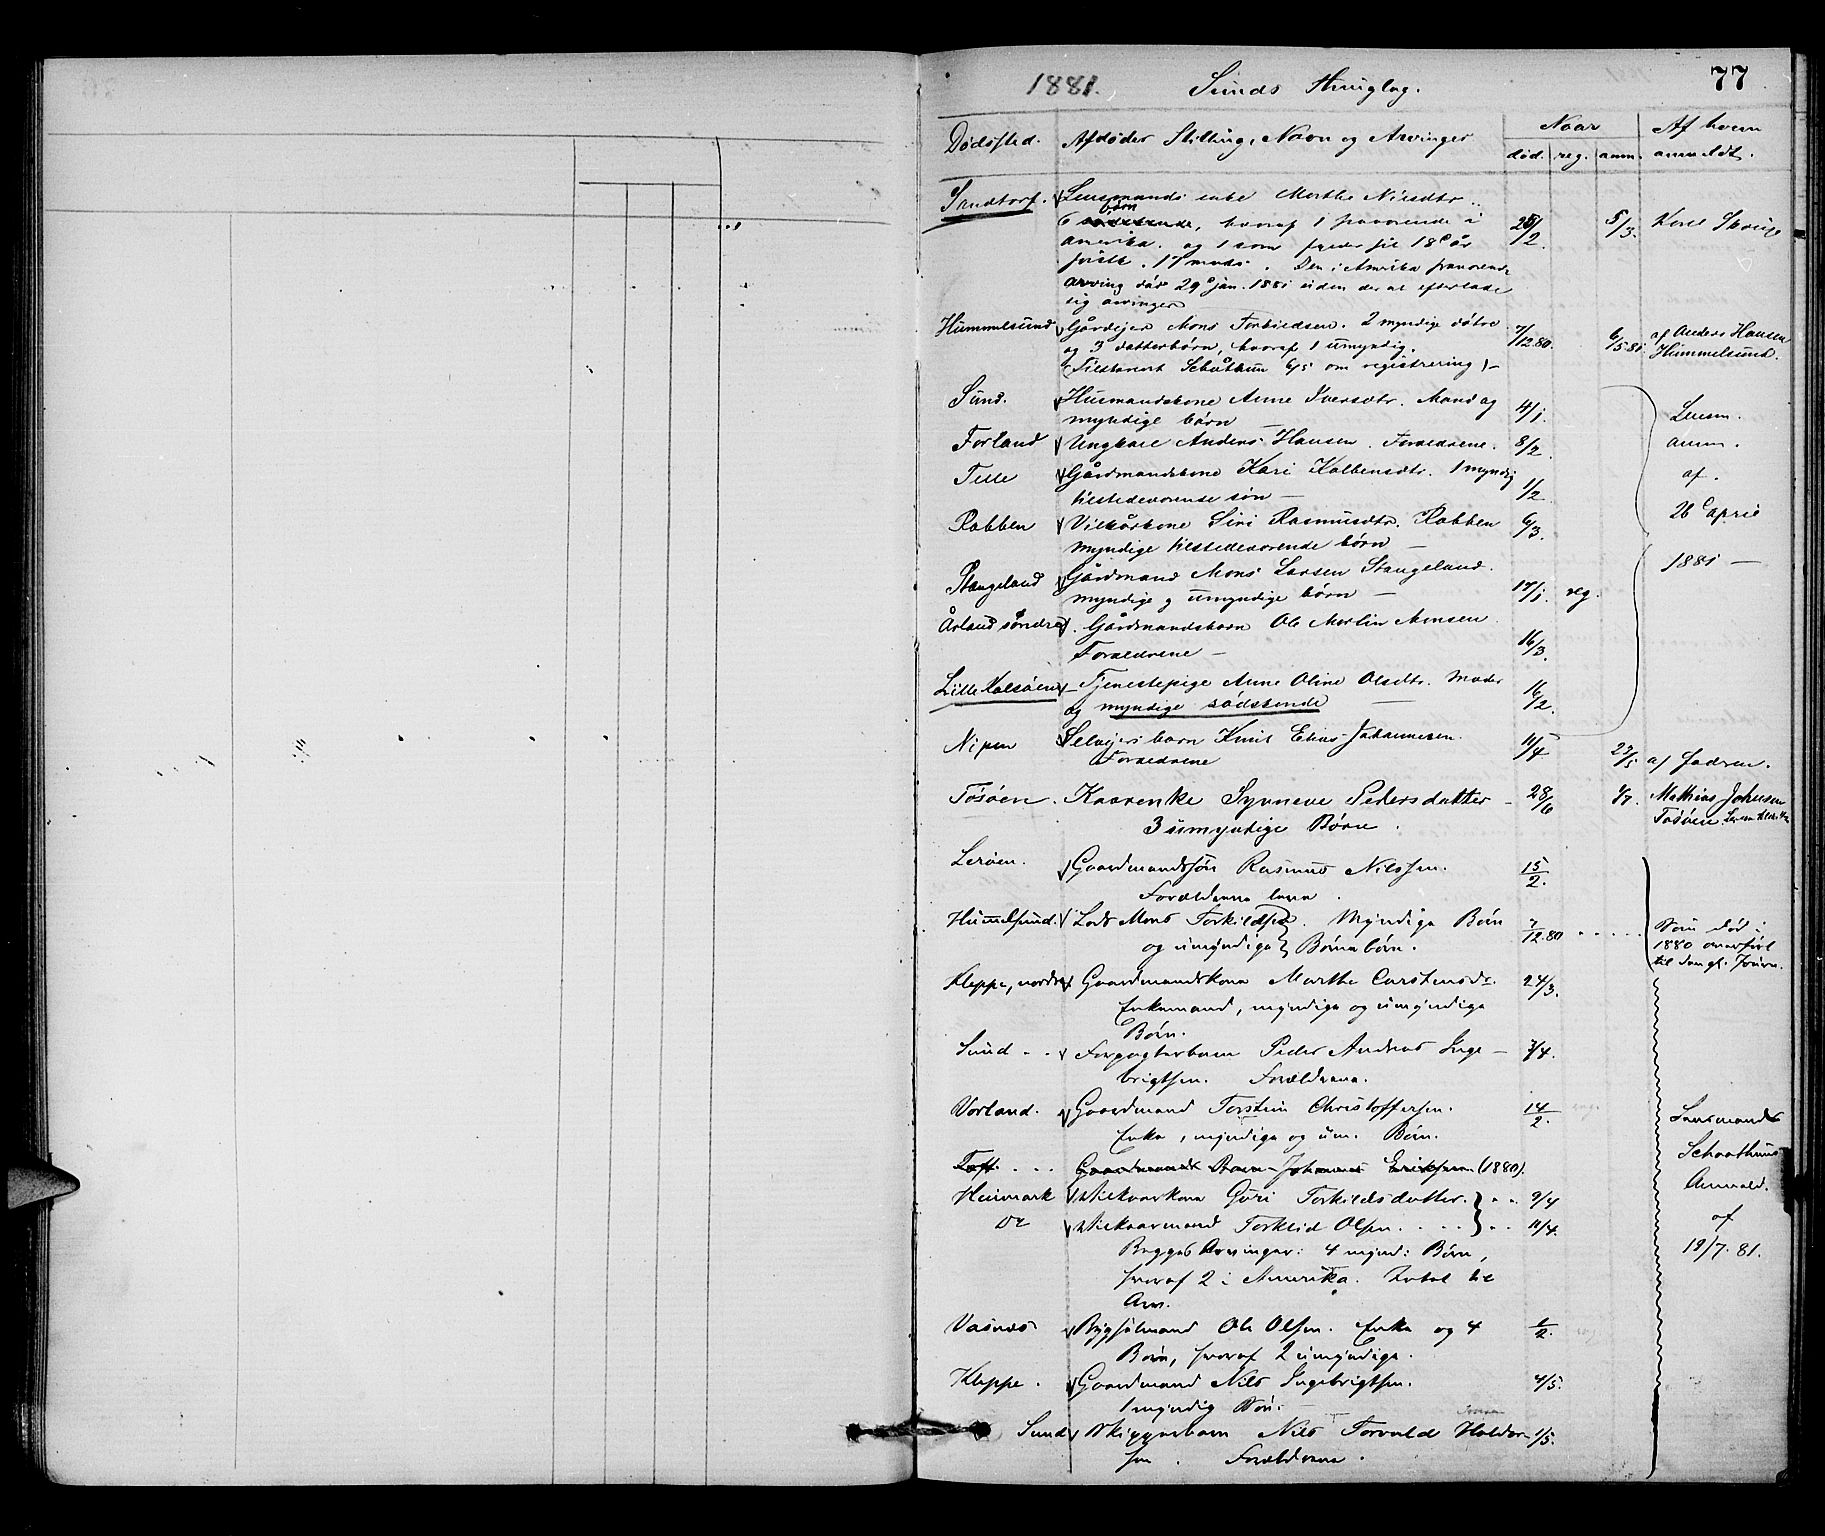 1881. Sunds Thinglag. 77
Dødssted. Afdødes Stilling, Navn og Arvinger Naar Af hvem
død. reg. anm. anmeldt.
Sundtorf. Lensmands enke Marthe Nilsdtr.
6 børn, hvoraf 1 fraværende i 25/2. 5/3.
Amerika. og 1 som fylder sit 18de år
først. 17 marts. Den i Amerika fraværende
arving død 29de jan. 1881 uden der at efterlade
sig arvinger
Hummelsund Gårdejer Mons Torkildsen. 2 myndige døtre 7/12.80. 6/5.81 af Anders Hansen
og 3 datterbørn, hvoraf 1 umyndig. Hummelsund.
(Tilskrevet Schåthun 6/5 om registrering)-
Sund. Husmandskone Anne Iversdtr. Mand og 4/1. Lensm.
myndige børn —
Forland Ungkarl Anders Hansen. Forældrene. 8/2. anm.
Telle Gårdmandskone Kari Kolbensdtr. 1 myndig 1/2 af.
tilstedeværende søn —
Rabben Vilkårkone Siri Rasmusdtr. Rabben 6/3. 26de april
myndige tilstedeværende børn —
Stangeland Gårdmand Mons Larsen Stangeland. 17/1. reg. 1881 —
myndige og umyndige børn —
Årland søndre Gårdmandsbarn Ole Martin Monsen 16/3.
Forældrene —
Lille Kalsøen – Tjenestepige Anne Oline Olsdtr. Moder 16/2.
og myndige sødskende —
Nipen Selvejers barn Knut Elias Johannesen. 11/4 23/5 af Fadren.
Forældrene
Tøsøen. Kaarenke Synneve Pedersdatter – 28/6 4/7. Mathias Johnsen
3 umyndige Børn. Tøsøen
Lerøen. Gaardmandssøn Rasmus Nilssen. 15/2.
Forældrene leva.
Hummelsund. Lods Mons Torkildsen. Myndige Børn 7/12.80 . . . . . Som død i
og umyndige Børnebørn. 1880 overført
til den gl. Journ.
Kleppe, nordre Gaardmandskone Marthe Carstensdr. 24/3.
Enkemand, myndige og umyndige
Børn.
Sund . . Forpagterbarn Peder Andreas Inge- 3/4.
brigtsen. Forældrene.
Vorland. Gaardmand Torstein Christoffersen. 14/2. reg. Lensmand
Enke, myndige og um. Børn. Schaathuns
Toft. . . Gaardmands Barn Johannes Eriksen (1880).
Anmeld.
Heimark Vilkaarkone Guri Torkildsdatter. . . 9/4
Do Vilkaarmand Torkild Olsen. . . . . . . 11/4. af
Begges Arvinger: 4 mynd: Børn, 19/7.81.
hvoraf 2 i Amerika. Intet til
Arv.
Vasnes Bygselmand Ole Olsen. Enke og 4 1/2. reg
Børn, hvoraf 2 umyndige.
Kleppe. Gaardmand Nils Ingebrigtsen. 4/5.
1 myndig Søn. —
Sund Skipperbarn Nils Torvald Haldor- 1/5.
sen. Forældrene.